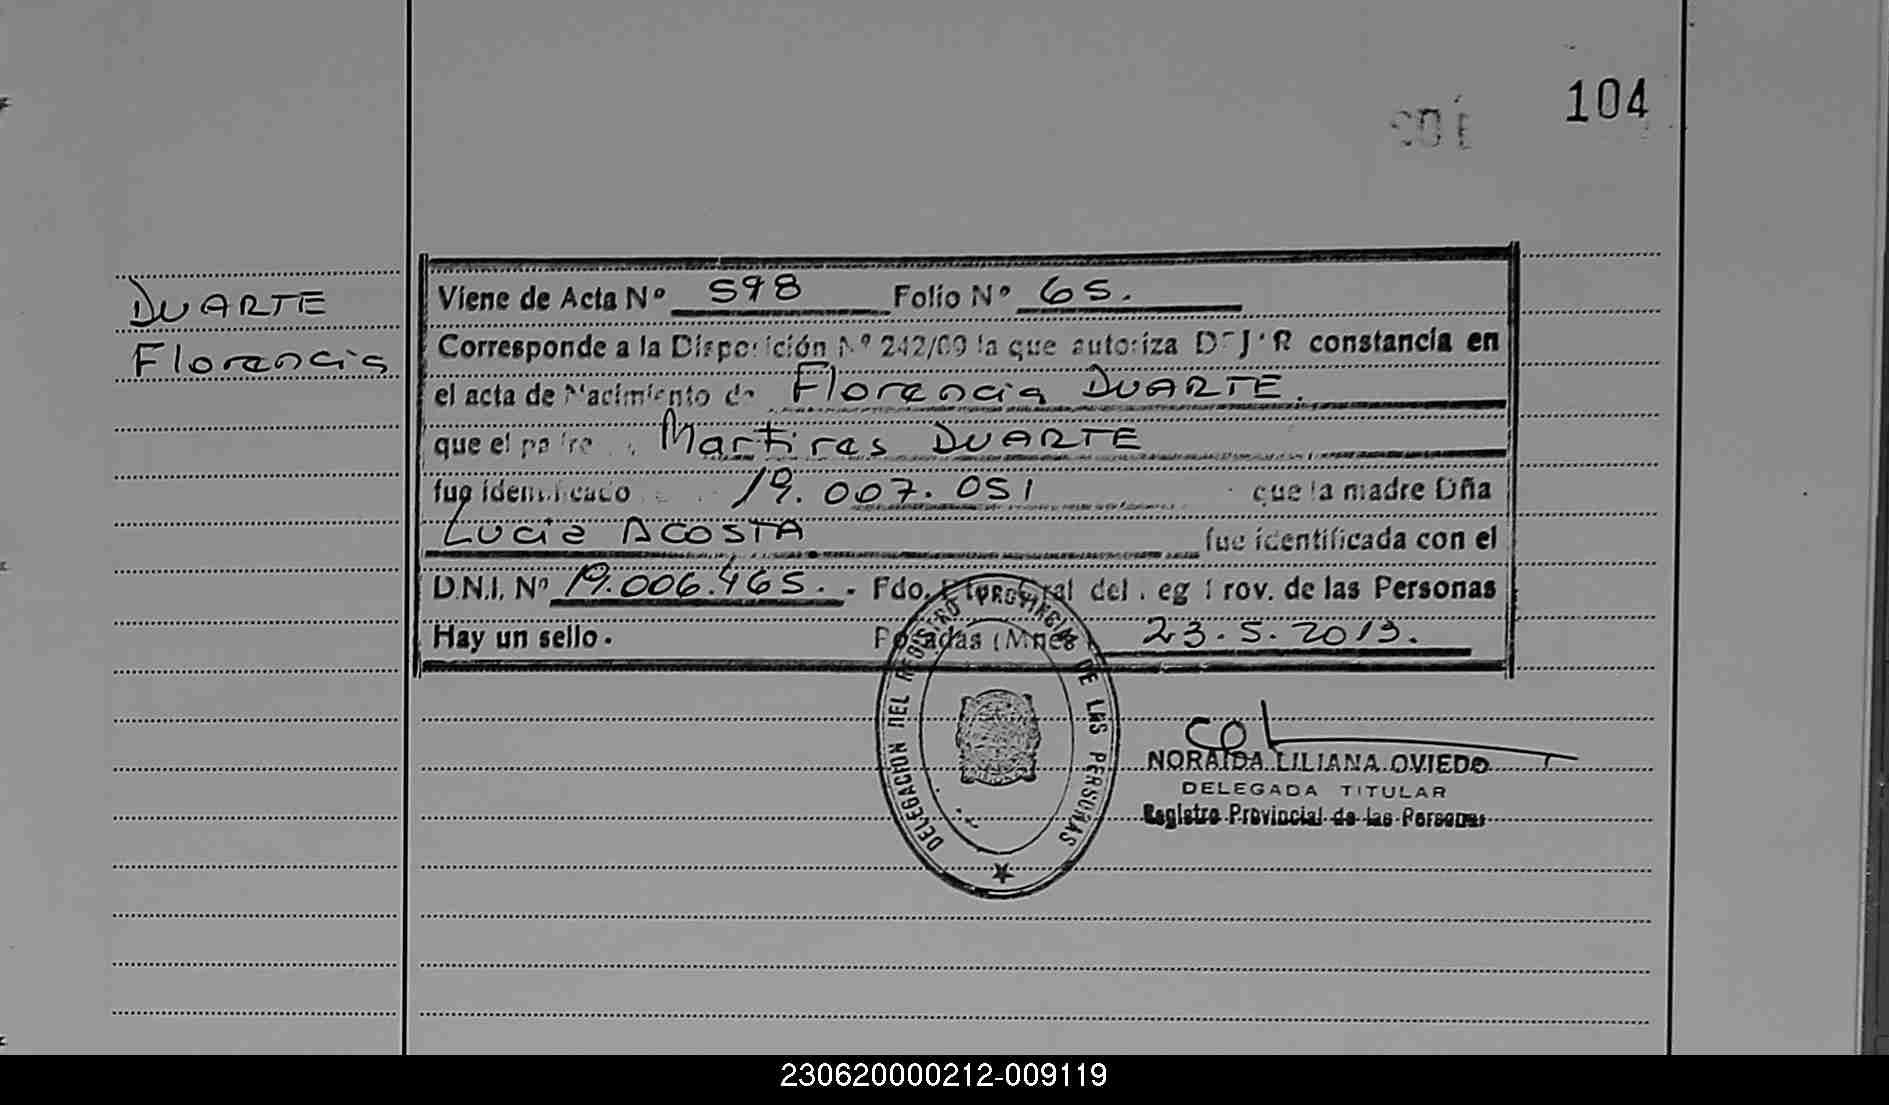 104
DUARTE
Florencia
Viene de Acta Nº 598 Folio Nº 65.
Corresponde a la Disposición Nº 242/09 la que autoriza DEJAR constancia en
el acta de Nacimiento de Florencia DUARTE.
que el padre Martires DUARTE
fue identificado 19.007.051 que la madre Dña
Lucia ACOSTA fue identificada con el
D.N.I. Nº 19.006.465. - Fdo. del Reg Prov. de las Personas
Hay un sello. Posadas (Mnes) 23.5.2013.
DELEGACION DEL REGISTRO PROVINCIAL DE LAS PERSONAS
NORAIDA LILIANA OVIEDO
DELEGADA TITULAR
Registro Provincial de las Personas
230620000212-009119